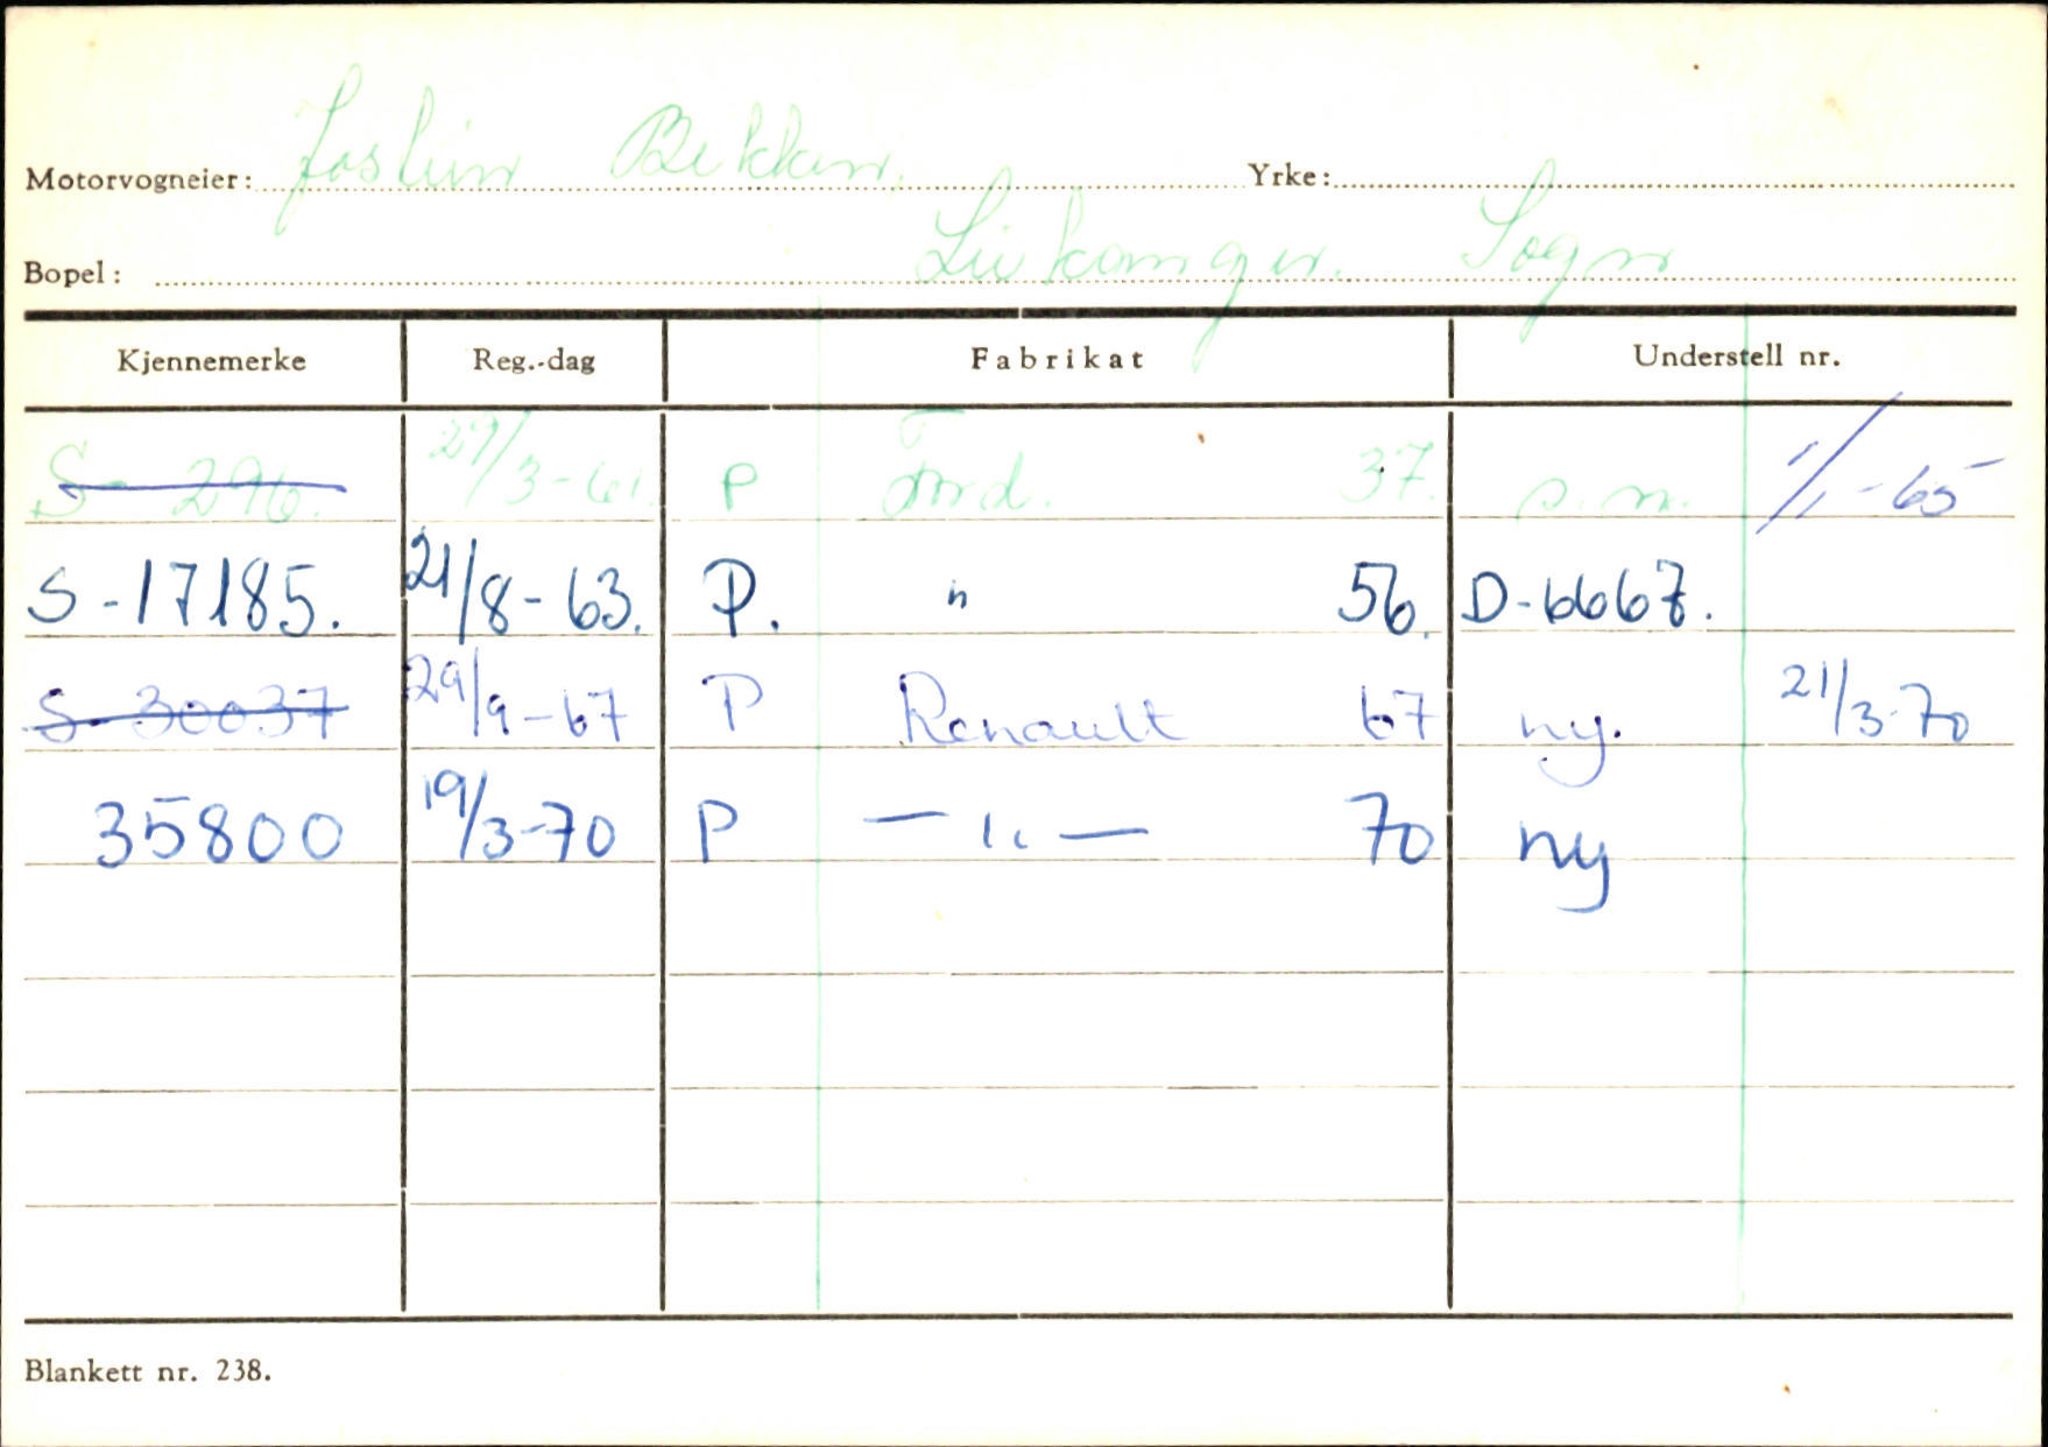 Motorvogneier: Jostein Bekken. Yrke:
Bopel: Leikanger. Sogn
Kjennemerke Reg.-dag Fabrikat Understell nr.
S 296. 29/3-61. P Ford. 37. s.n. 1/1-65
S-17185. 21/8-63. P. " 56. D-6667.
S-30037 29/9-67 P Renault 67 ny. 21/3-70
35800 19/3-70 P — " — 70 ny
Blankett nr. 238.